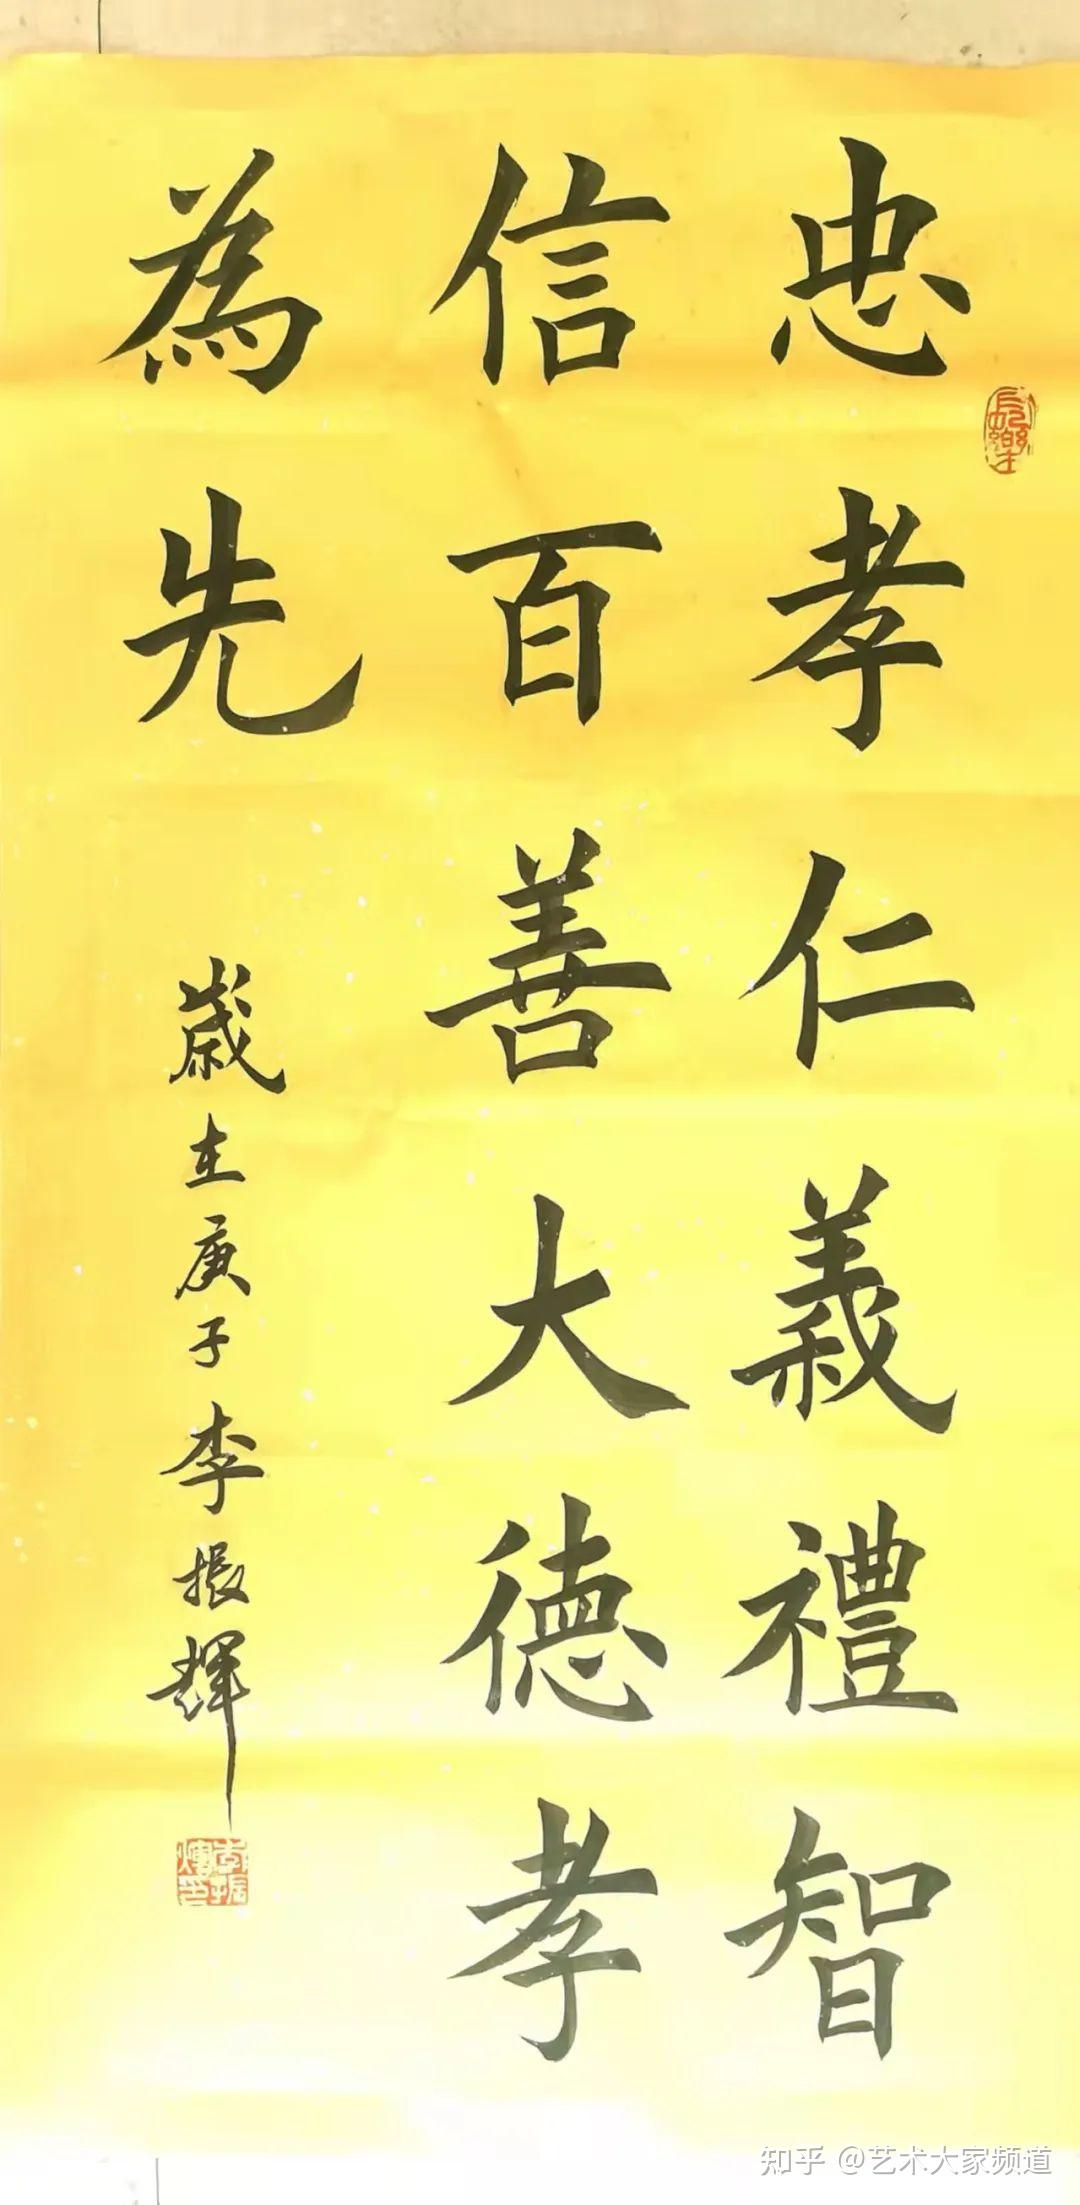 忠孝仁義禮智
信百善大德孝
為先
歲在庚子李振輝
長樂
李振輝印
知乎 @艺术大家频道